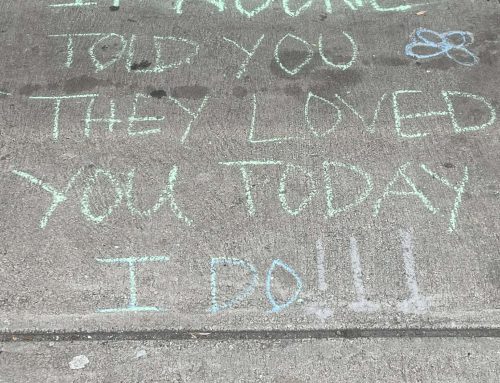 IF NOONE
TOLD YOU
THEY LOVED
YOU TODAY
I DO!!!